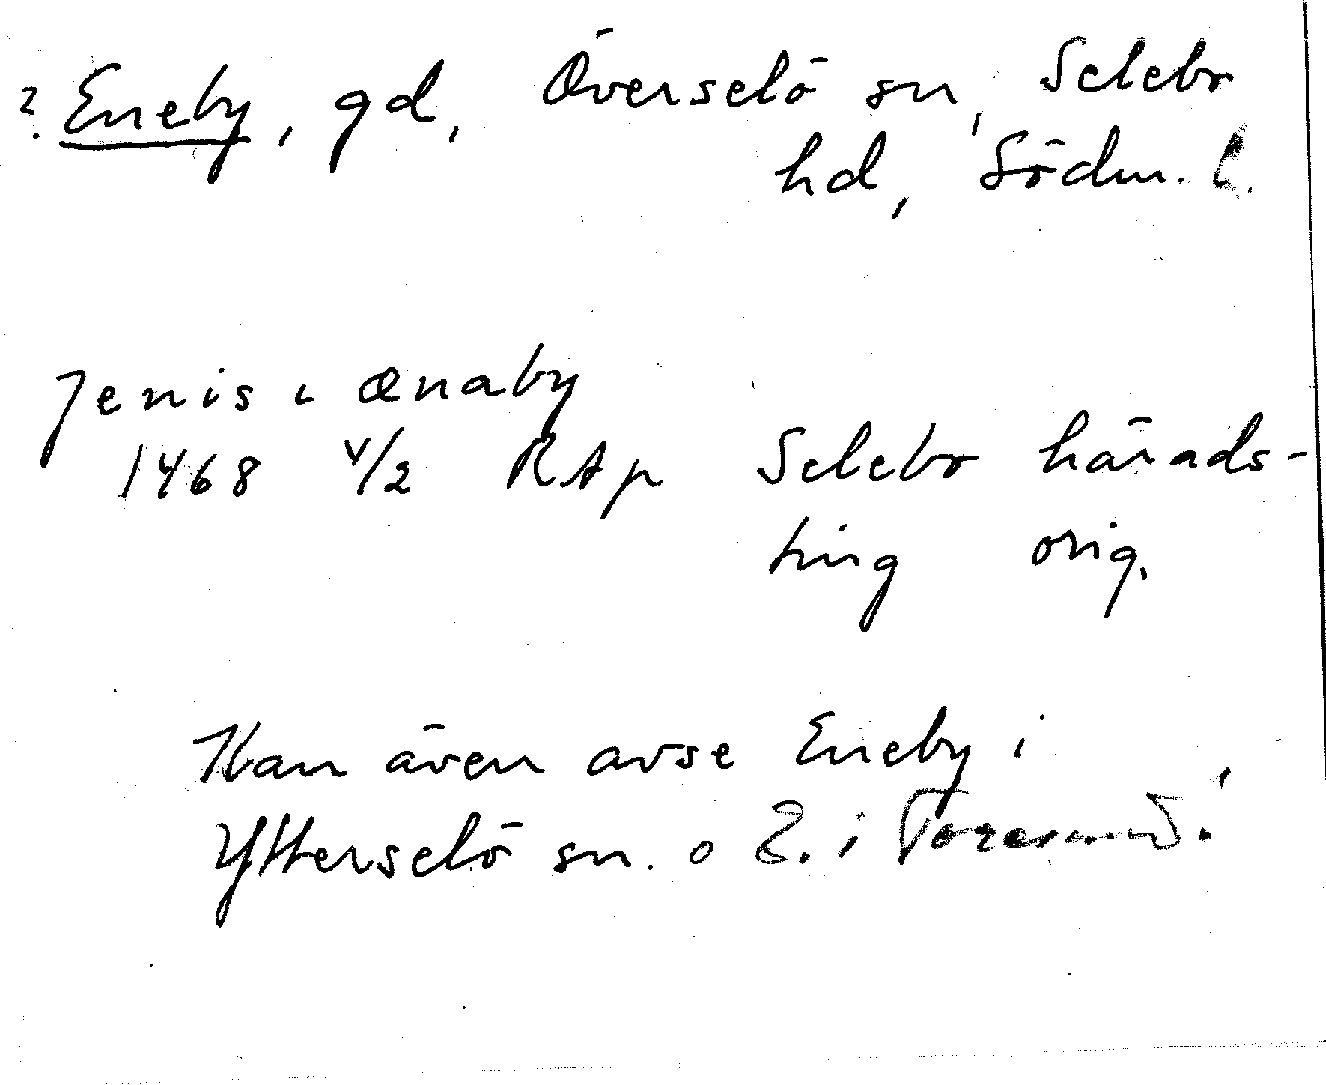 ? Eneby, gd, Överselö sn, Selebo
hd, Södm. l.
Jenis i ænaby
1468 4/2 RAp Selebo härads-
ting orig.
Kan även avse Eneby i
Ytterselö sn. o E. i Toresund.